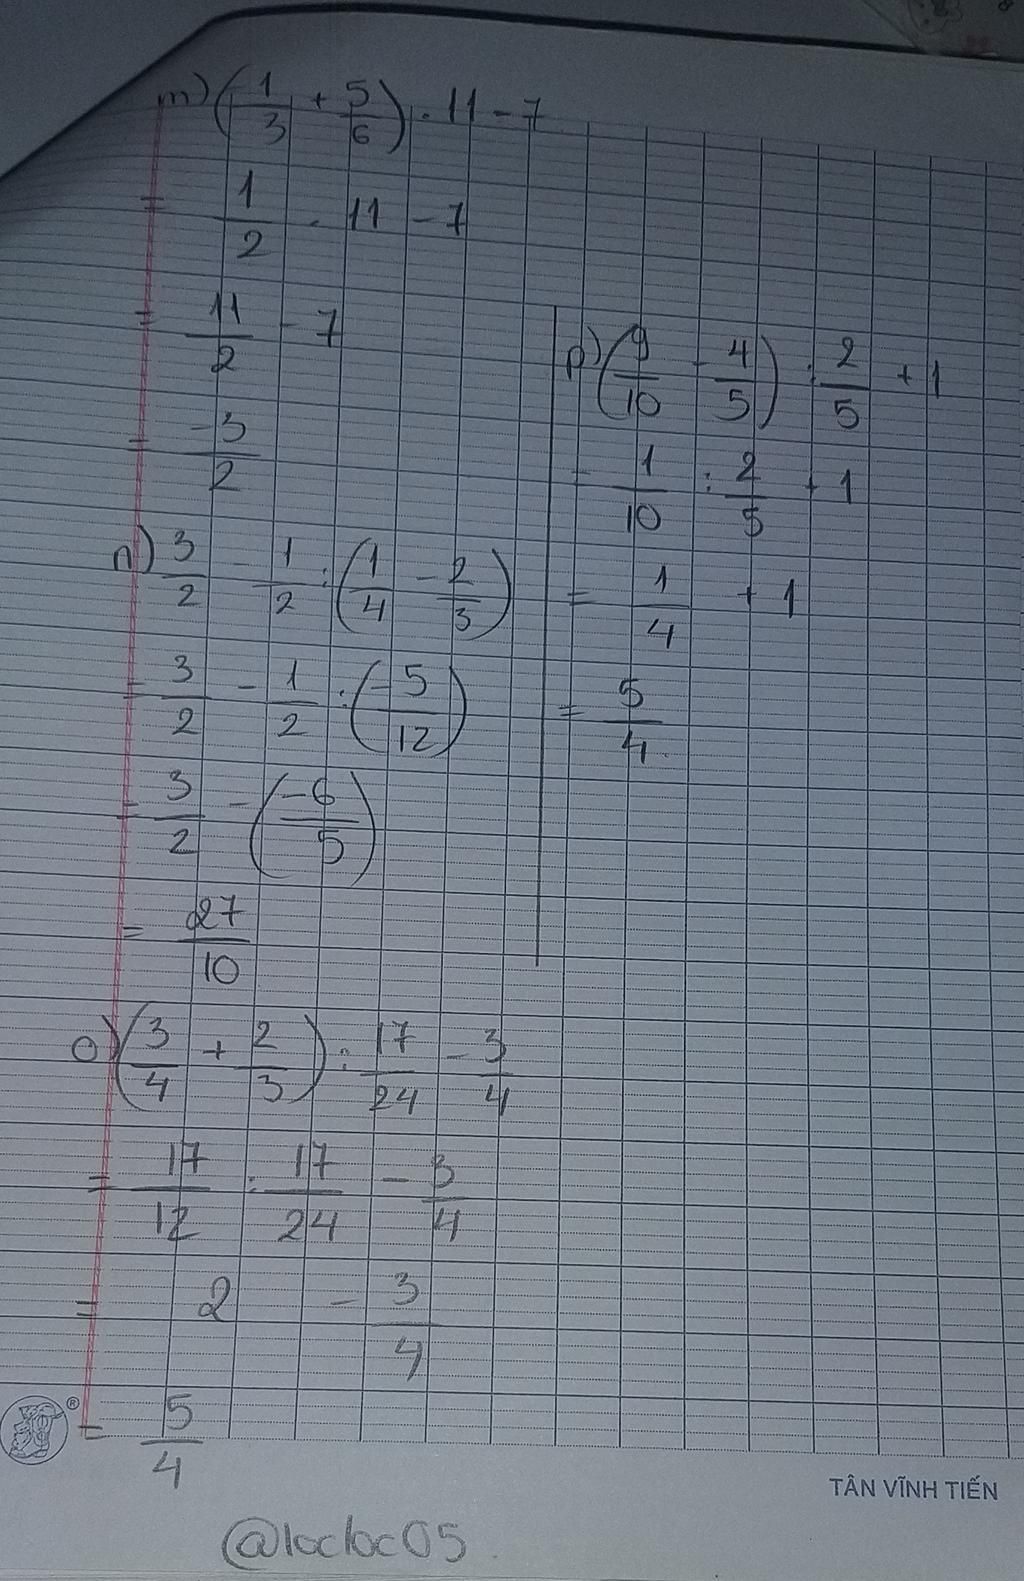 m) (-1/3 + 5/6) . 11 - 7
= 1/2 . 11 - 7
= 11/2 - 7
= -3/2
n) 3/2 - 1/2 : (1/4 - 2/3)
= 3/2 - 1/2 : (-5/12)
= 3/2 - (-6/5)
= 27/10
o) (3/4 + 2/3) : 17/24 - 3/4
= 17/12 : 17/24 - 3/4
= 2 - 3/4
= 5/4
p) (9/10 - 4/5) : 2/5 + 1
= 1/10 : 2/5 + 1
= 1/4 + 1
= 5/4
®
TÂN VĨNH TIẾN
@locloc05